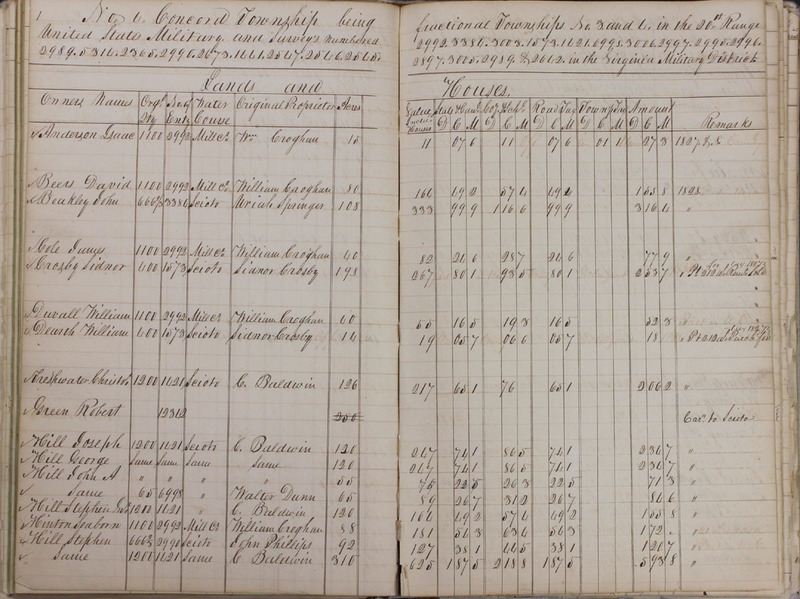 No. 6. Concord Township being fractional Townships No. 3 and 6. in the 20th Range
United States Military, and Surveys numbered 2992. 3386. 3003. 1573. 1621. 6998. 3006. 2997. 2995. 2996.
2989. 5316. 2365. 2990. 2673. 1661. 2567. 2566. 2565. 2897. 3005. 2989. & 2062. in the Virginia Military District
Lands and Houses.
Owners Names Orgl Qy No of Enty Water Course Original Proprietor Acres Value Houses State & Canal Co. & School Road Tax Township Tax Amount Remarks
D C M D C M D C M D C M D C M
Anderson Isaac 1100 2992 Mill Ck Wm Croghan 15 11 07 6 11 07 6 01 1 27 3 1827 & 8
Beers David 1100 2992 Mill Ck William Croghan 80 164 49 2 57 4 49 2 1 55 8 1828
Beakley John 666⅔ 3386 Scioto Uriah Springer 108 333 99 9 1 16 6 99 9 3 16 4 "
Cole James 1100 2992 Mill Ck William Croghan 40 82 24 6 28 7 24 6 77 9 "
Crosby Sidnor 400 1573 Scioto Sidnor Crosby 193 267 80 1 93 5 80 1 2 53 7 "
Duvall William 1100 2992 Mill Ck William Croghan 40 55 16 5 19 3 16 5 52 3 "
Dearth William 400 1573 Scioto Sidnor Crosby 14 19 05 7 06 6 05 7 18 "
Freshwater Christor 1200 1421 Scioto C. Baldwin 126 217 65 1 76 65 1 2 06 2 "
Green Robert 12312 250 Car. to Scioto
Hill Joseph 1200 1421 Scioto C. Baldwin 120 247 74 1 86 5 74 1 2 34 7 "
Hill George Same Same Same Same 120 247 74 1 86 5 74 1 2 34 7 "
Hill John A " " " " 55 75 22 5 26 3 22 5 71 3 "
Same 65 6998 " Walter Dunn 65 89 26 7 31 2 26 7 84 6 "
Hill Stephen 1200 1421 " C. Baldwin 120 164 49 2 57 4 49 2 1 55 8 "
Hinton Seaborn 1100 2992 Mill Ck William Croghan 88 181 54 3 63 4 54 3 1 72 "
Hill Stephen 666⅔ 2990 Scioto John Phillips 92 127 38 1 44 5 38 1 1 20 7 "
Same 1200 1421 Same C. Baldwin 310 625 1 87 5 2 18 8 1 87 5 5 93 8 "